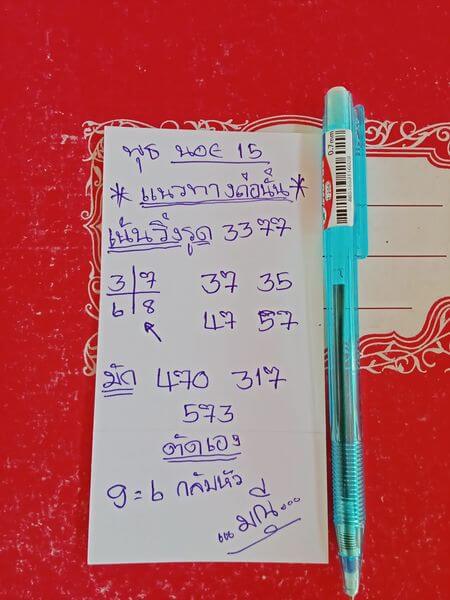 พุธ นอย 15
*แนวทางดือนั้น*
เน้นวิ่งรูด 3377
3 7 37 35
6 8 47 57
มัด 470 317
573
ตัดเอง
9=6 กลับหัว
...มณี...
0.7mm